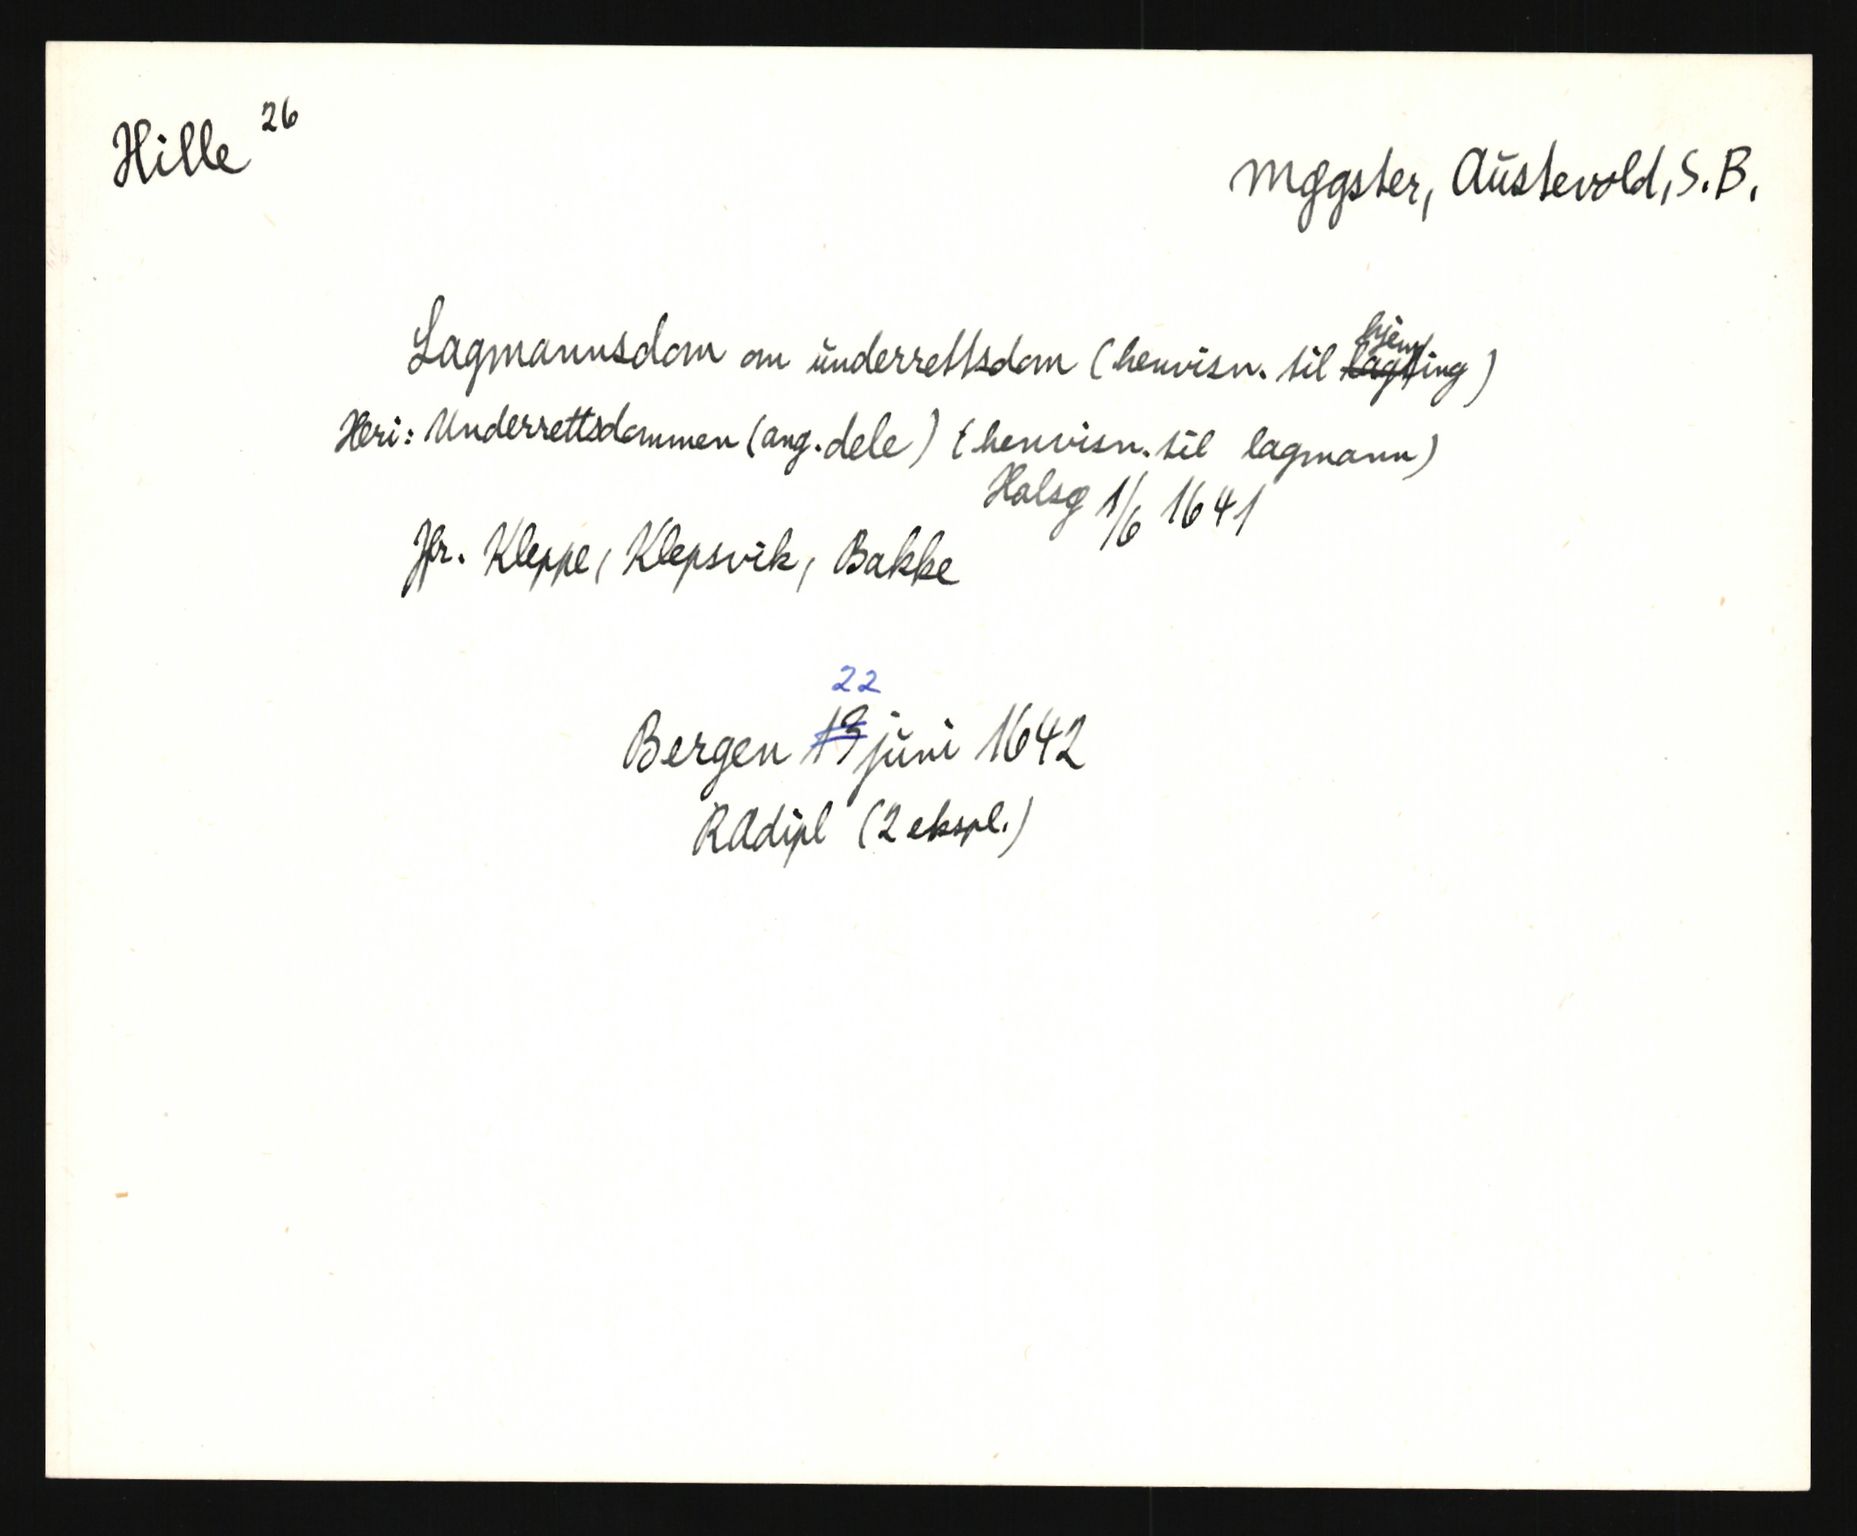 Hille 26
Møgster, Austevold, S.B.
Lagmannsdom om underrettsdom (henvisn. til hjemting)
Heri: Underrettsdommen (ang. dele) (henvisn. til lagmann)
Halsø 1/6 1641
Jfr. Kleppe, Klepsvik, Bakke
22
Bergen 13 juni 1642
RAdipl (2 ekspl.)